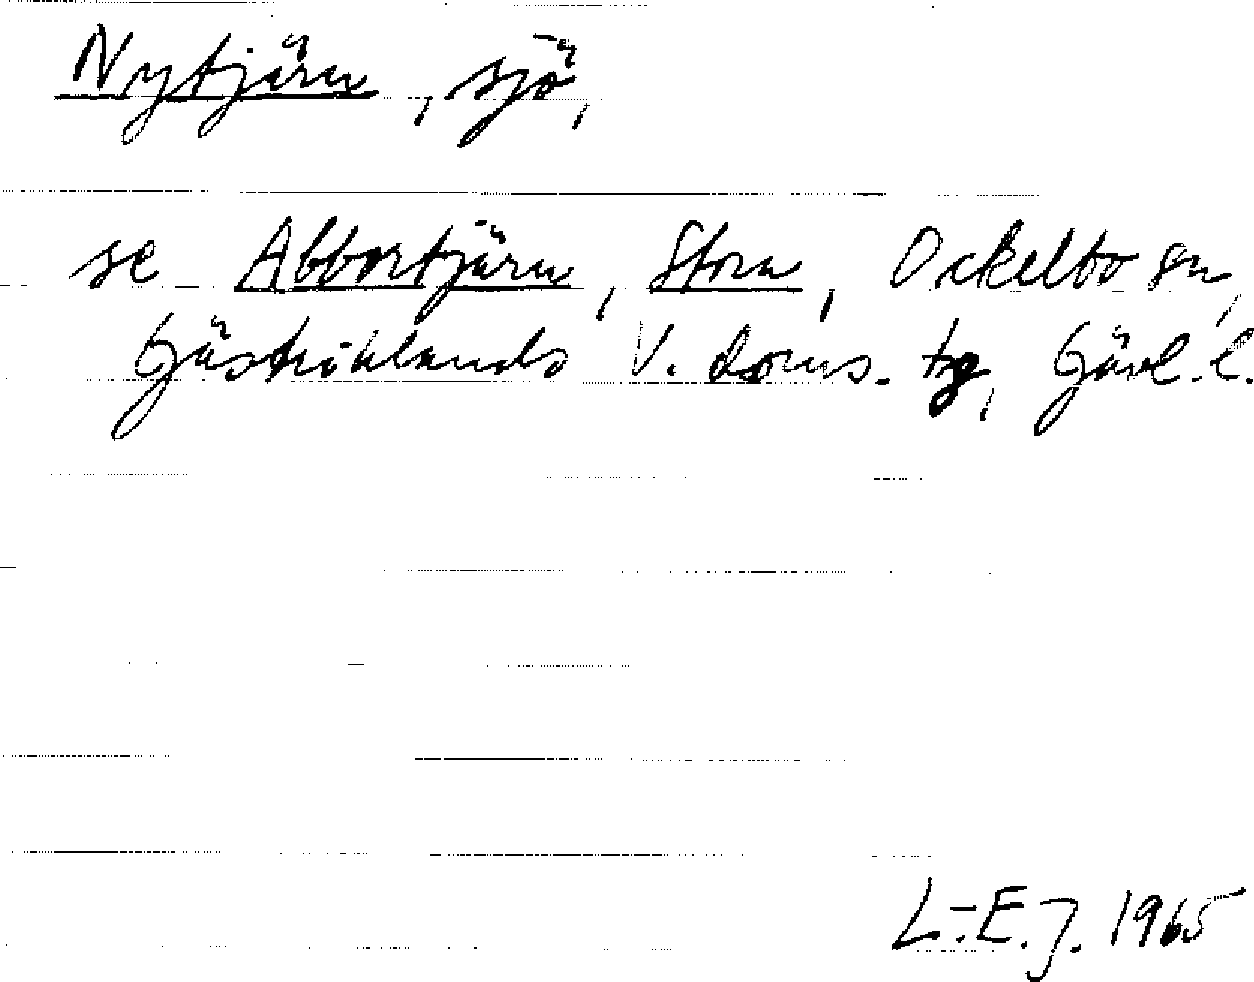 Nytjärn, sjö,
se Abbortjärn, Stora, Ockelbo sn,
Gästriklands V. doms. tg, Gävl. l.
L.-E.J. 1965